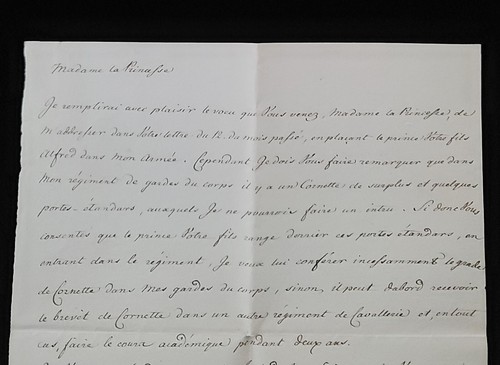 Madame la Princesse
Je remplirai avec plaisir le voeu que Vous venez, Madame la Princesse, de
m'addresser dans Votre lettre du 12. du mois passé, en plaçant le prince Votre fils
Alfred dans mon Armée. Cependant Je dois Vous faire remarquer que dans
Mon régiment de gardes du corps il y a un Cornette de surplus et quelques
portes-étandars, auxquels Je ne pourrois faire un intru. Si donc Vous
consentés que le prince Votre fils range derrier ces portes étandars, en
entrant dans le régiment, Je veux lui conférer incessamment le grade
de Cornette dans Mes gardes du corps, sinon, il peut dabord recevoir
le brevet de Cornette dans un autre régiment de Cavallerie et, en tout
cas, faire le cours académique pendant deux ans.